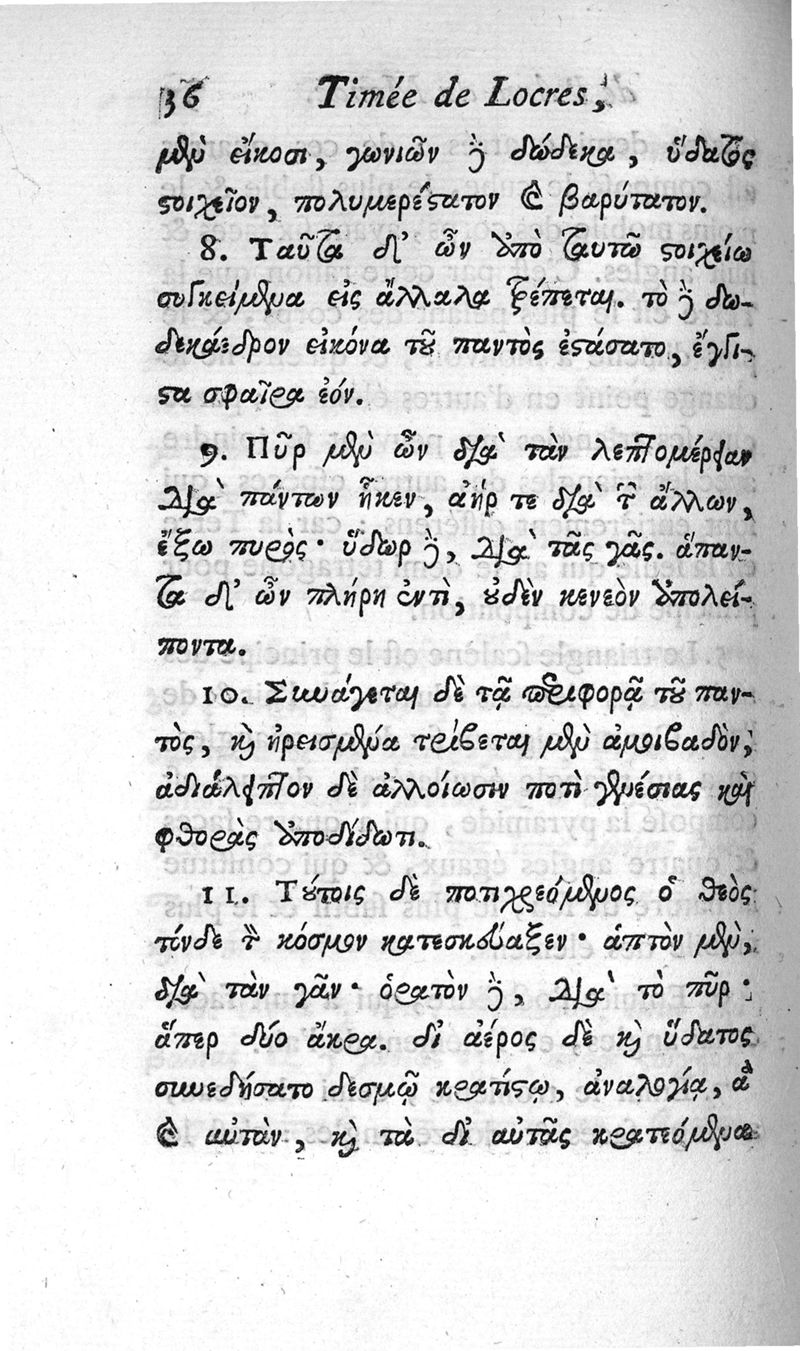 36 Timée de Locres,
μὲν εἴκοσι, γωνιῶν δὲ δώδεκα, ὕδατος
στοιχεῖον, πολυμερέστατον καὶ βαρύτατον.
8. Ταῦτα δ' ὦν ἀπὸ ταυτῶ στοιχείω
συγκείμενα εἰς ἄλλαλα τρέπεται. τὸ δὲ δω-
δεκάεδρον εἰκόνα τοῦ παντὸς ἐστάσατο, ἔγγι-
στα σφαῖρα ἐόν.
9. Πῦρ μὲν ὦν διὰ τὰν λεπτομέρειαν
διὰ πάντων ἧκεν, ἀήρ τε διὰ τῶν ἄλλων,
ἔξω πυρός· ὕδωρ δὲ, διὰ τᾶς γᾶς. ἅπαν-
τα δ' ὦν πλήρη ἐντὶ, οὐδὲν κενεὸν ἀπολεί-
ποντα.
10. Συνάγεται δὲ τᾷ περιφορᾷ τοῦ παν-
τὸς, καὶ ἠρεισμένα τρίβεται μὲν ἀμοιβαδὸν,
ἀδιάλειπτον δὲ ἀλλοίωσιν ποτὶ γενέσιας καὶ
φθορὰς ἀποδίδωτι.
11. Τούτοις δὲ ποτιχρεόμενος ὁ θεὸς
τόνδε τὸν κόσμον κατεσκεύαξεν· ἁπτὸν μὲν,
διὰ τὰν γᾶν· ὁρατὸν δὲ, διὰ τὸ πῦρ·
ἅπερ δύο ἄκρα. δι' ἀέρος δὲ καὶ ὕδατος
συνεδήσατο δεσμῷ κρατίστῳ, ἀναλογίᾳ, ἃ
καὶ αὐτὰν, καὶ τὰ δι' αὐτᾶς κρατεόμενα